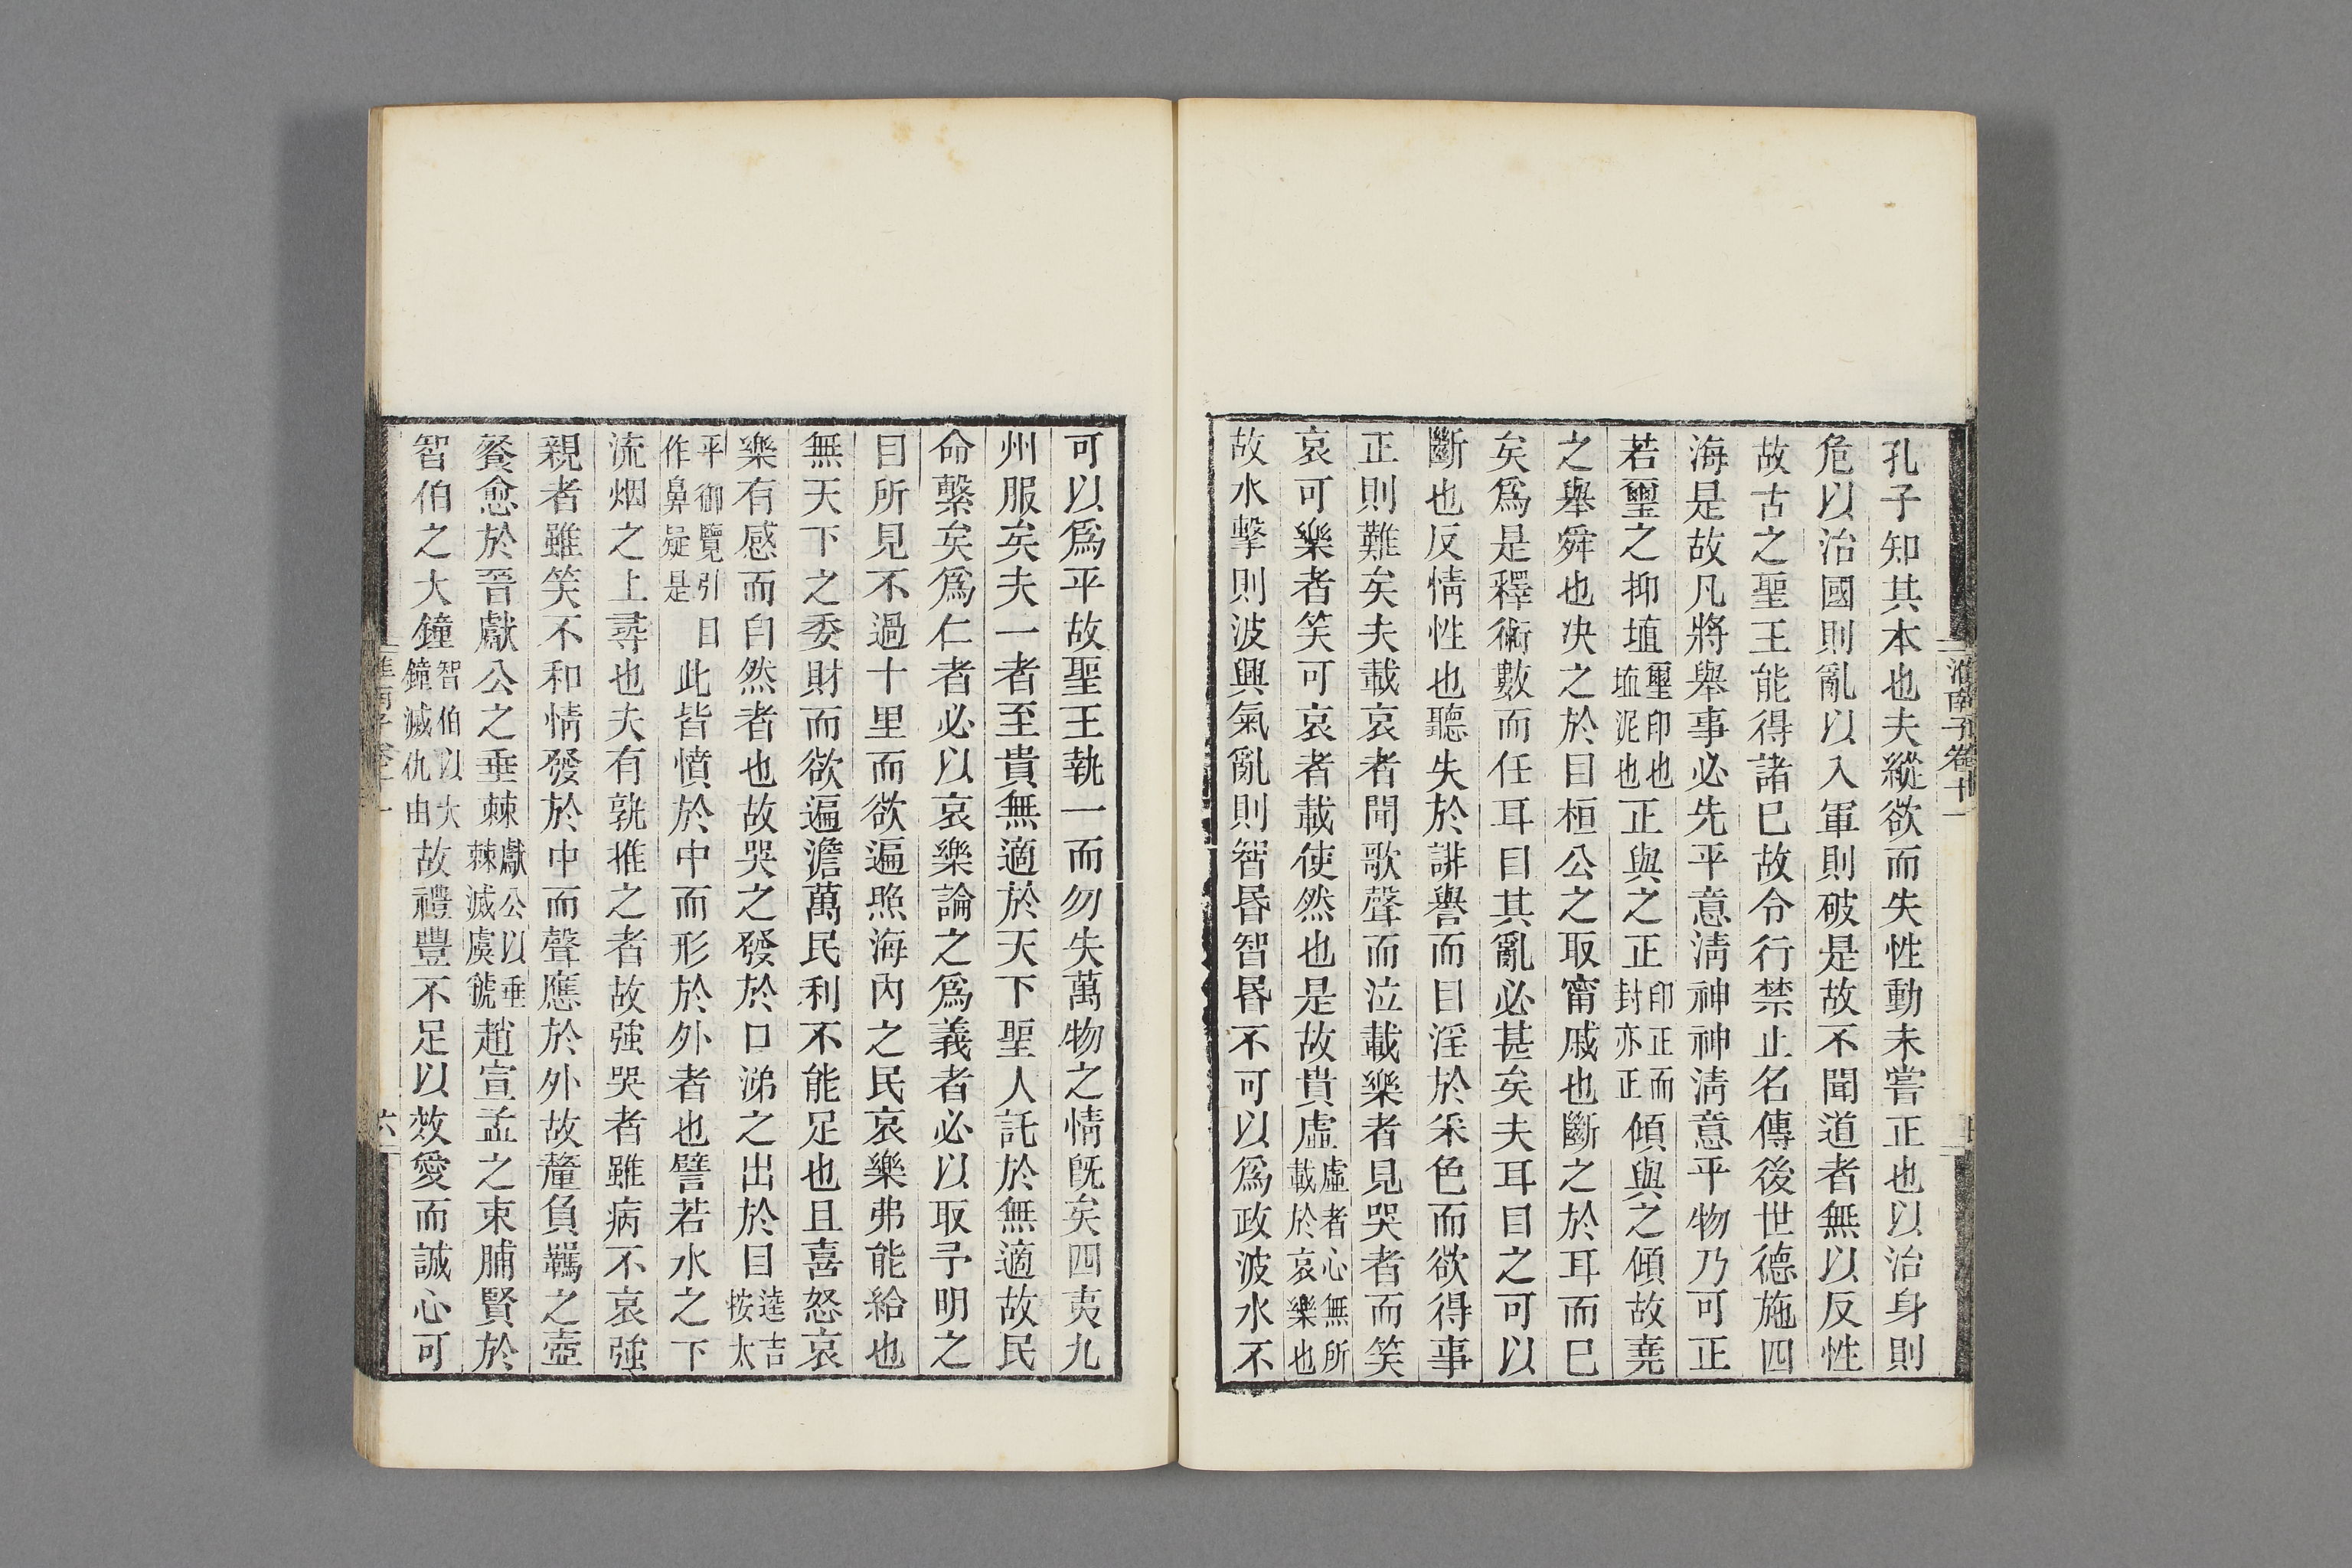 孔子知其本也夫縱欲而失性動未嘗正也以治身則
危以治國則亂以入軍則破是故不聞道者無以反性
故古之聖王能得諸巳故令行禁止名傳後世德施四
海是故凡將舉事必先平意淸神神淸意平物乃可正
若璽之抑埴璽印也埴泥也正與之正印正而封亦正傾與之傾故堯
之舉舜也决之於目桓公之取甯戚也斷之於耳而巳
矣爲是釋術數而任耳目其亂必甚矣夫耳目之可以
斷也反情性也聽失於誹譽而目淫於釆色而欲得事
正則難矣夫載哀者聞歌聲而泣載樂者見哭者而笑
哀可樂者笑可哀者載使然也是故貴虛虛者心無所載於哀樂也
故水擊則波興氣亂則智昬智昬不可以爲政波水不
淮南子卷十一
可以爲平故聖王執一而勿失萬物之情旣矣四夷九
州服矣夫一者至貴無適於天下聖人託於無適故民
命繫矣爲仁者必以哀樂論之爲義者必以取予明之
目所見不過十里而欲遍照海內之民哀樂弗能給也
無天下之委財而欲遍澹萬民利不能足也且喜怒哀
樂有感而自然者也故哭之發於口涕之出於目逵吉按太
平御覽引目作鼻疑是此皆憤於中而形於外者也譬若水之下
流烟之上尋也夫有孰推之者故強哭者雖病不哀強
親者雖笑不和情發於中而聲應於外故釐負羈之壺
餐愈於晉獻公之垂棘獻公以垂棘滅虞虢趙宣孟之束脯賢於
智伯之大鐘智伯以大鐘滅仇由故禮豐不足以效愛而誠心可
淮南子卷十一
六